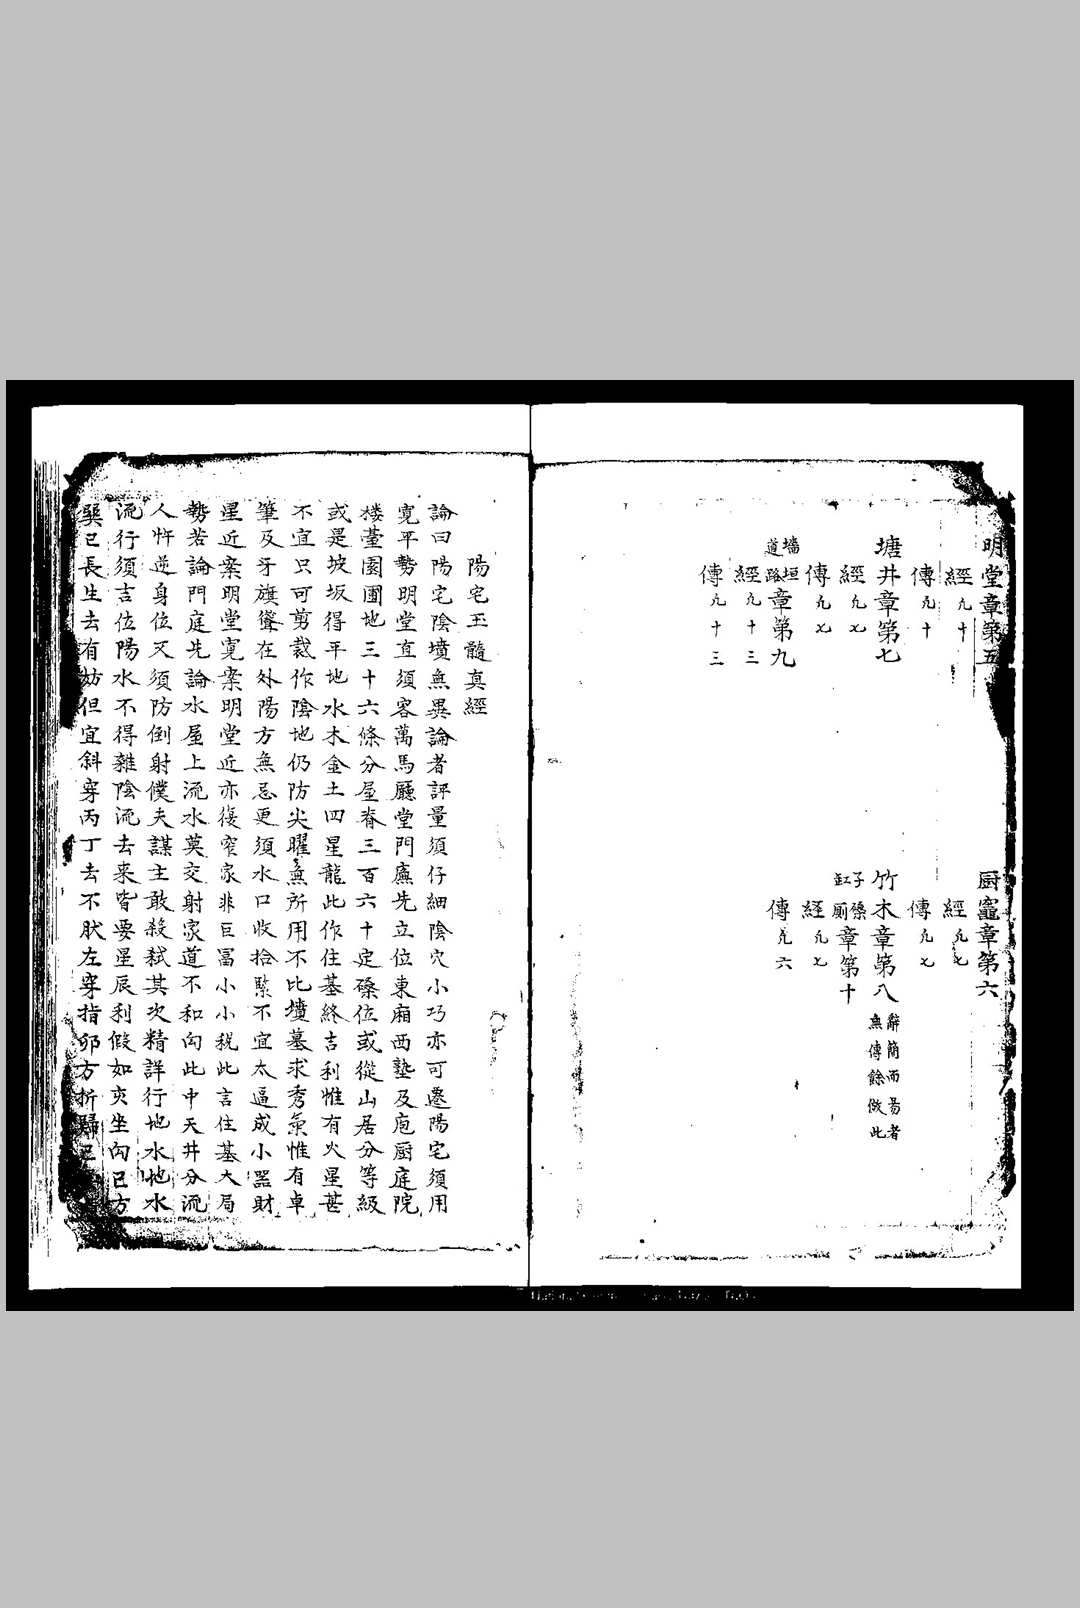 明堂章第五　　厨竈章第六
經凡十　　經凡七
傳凡十　　傳凡七
塘井章第七　　竹木章第八辭簡而易者無傳餘倣此
經凡七　　缸子磉厠章第十
傳凡七　　經凡七
墻垣道路章第九　　傳凡六
經凡十三
傳凡十三
陽宅玉髓真經
論曰陽宅陰墳無異論者評量須仔細陰穴小巧亦可遷陽宅須用
寬平勢明堂直須容萬馬廳堂門廡先立位東廂西塾及庖厨庭院
楼䑓園圃地三十六條分屋脊三百六十定磉位或從山居分等級
或是坡坂得平地水木金土四星龍此作住基終吉利惟有火星甚
不宜只可剪裁作陰地仍防尖曜無所用不比墳墓求秀氣惟有卓
筆及牙旗聳在外陽方無忌更須水口收拾緊不宜太逼成小器財
星近案明堂寬案明堂近亦復窄家非巨冨小小税此言住基大局
勢若論門庭先論水屋上流水莫交射家道不和向此中天井分流
人忤逆身位又須防倒射僕夫謀主敢殺弑其次精詳行地水地水
流行須吉位陽水不得雜陰流去来皆要星辰利假如亥坐向巳方
巽巳長生去有妨但宜斜穿丙丁去不然左穿指卯方折歸